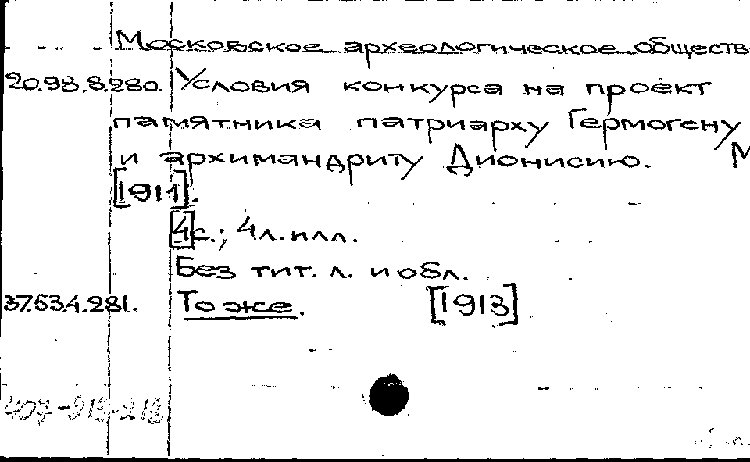 Московское археологическое обществ
20.98.8.280. Условия конкурса на проект
памятника патриарху Гермогену
и архимандриту Дионисию. М
[1911].
[4]с.; 4л.илл.
Без тит. л. и обл.
37.63.4.281. То же. [1913]
407-913-218